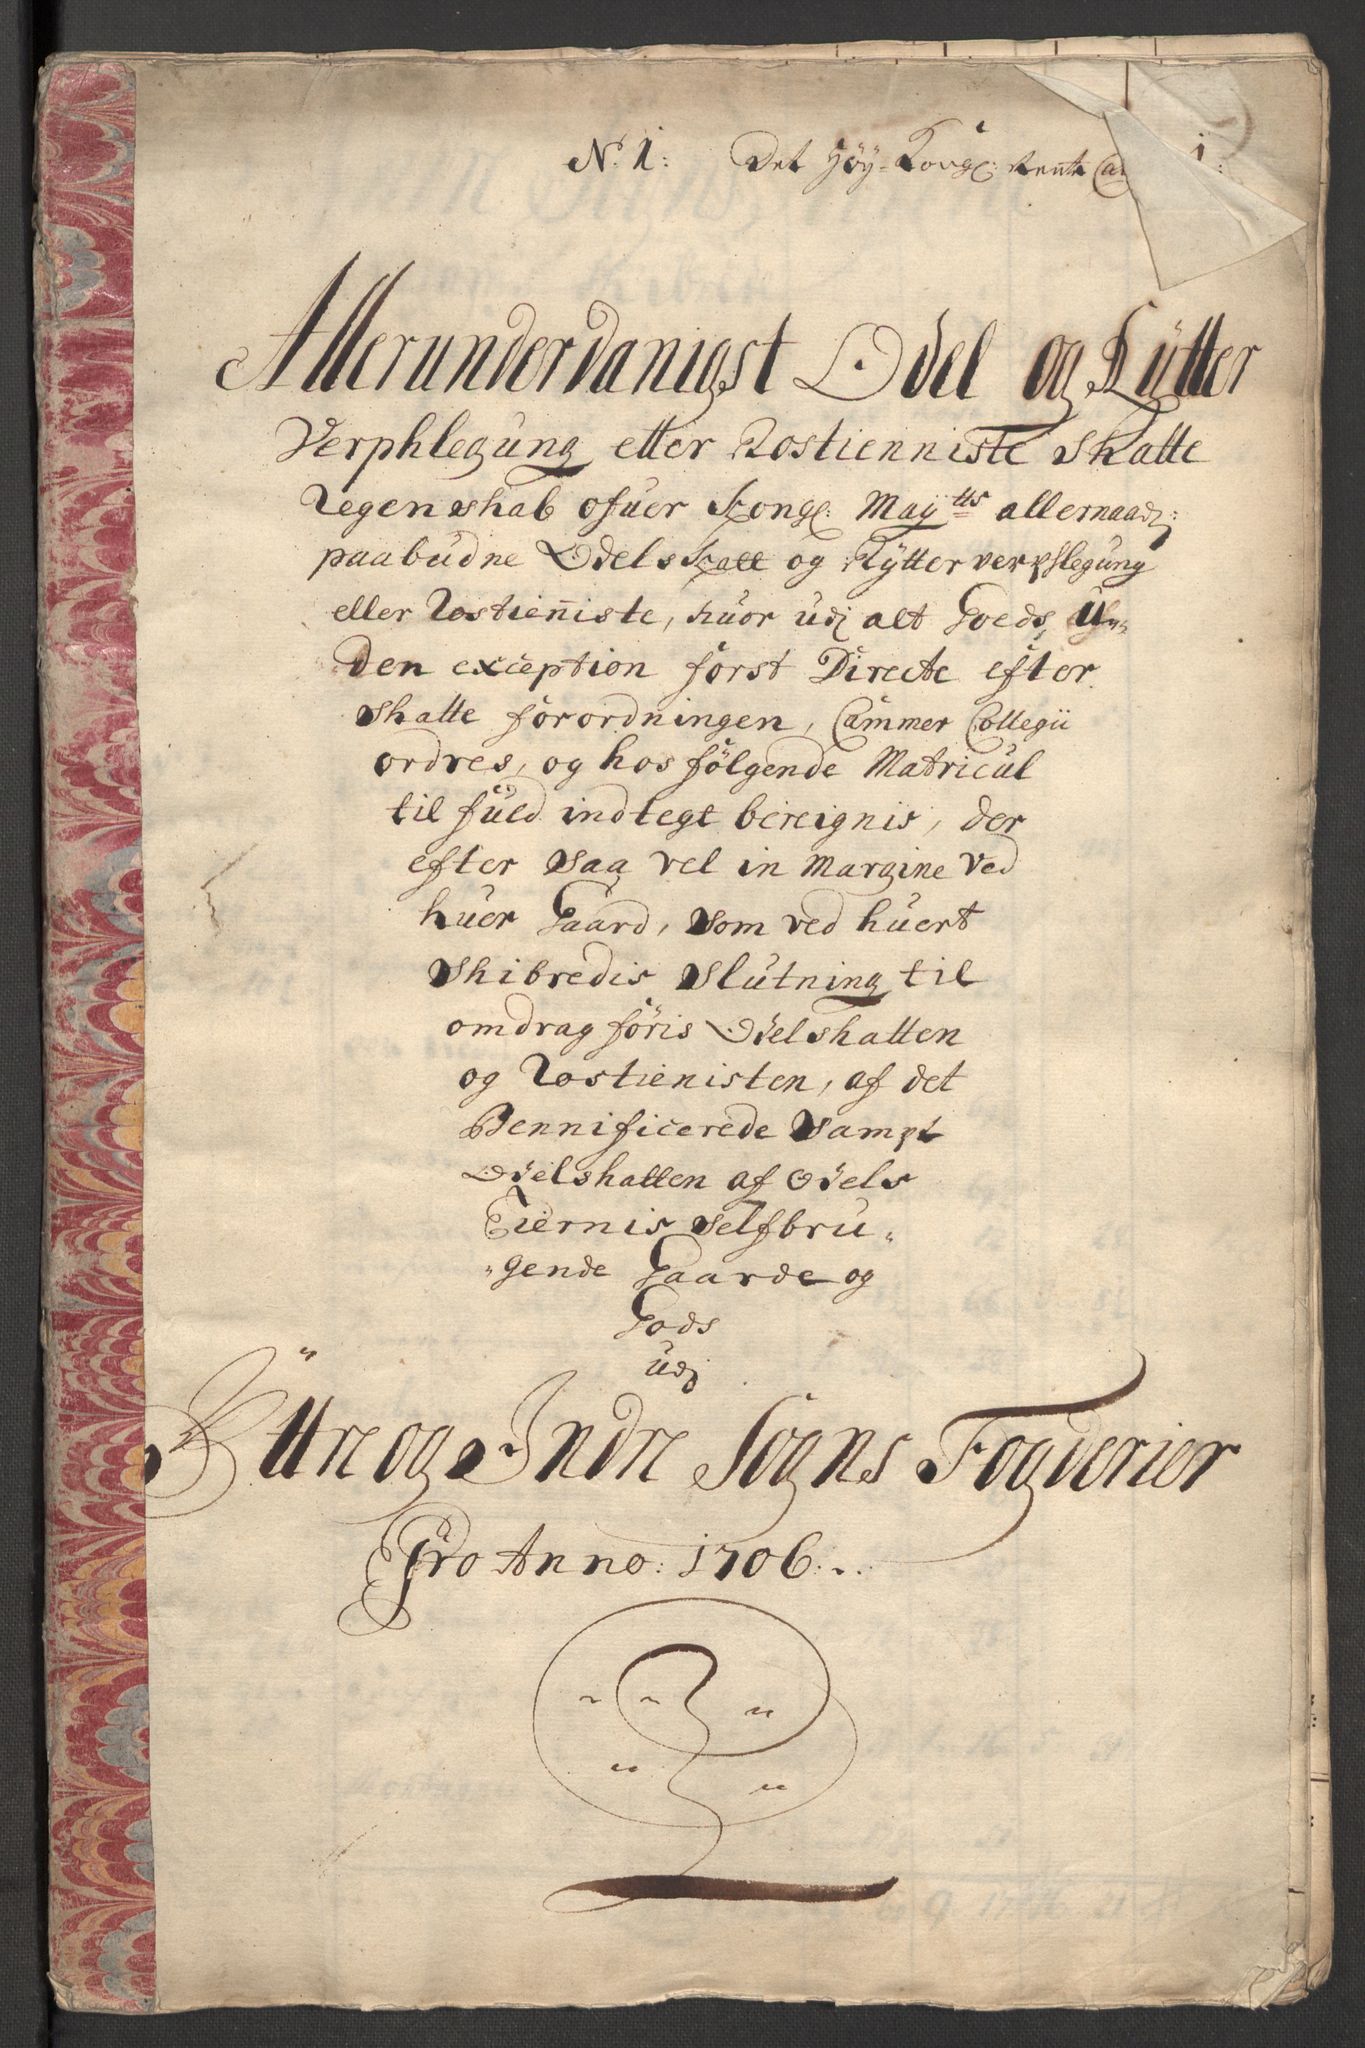 No. 1: Det Höy-Kongl: Rente Ca 1:
Allerunderdanigst Odel og Rÿtter
Verphlegung eller Rostienniste Skatte
Regenskab ofuer Kongl: Maytts allernaadj:
paabudne Odelskatt og Rÿtter verpflegung
eller Rostienniste, huor udj alt Goeds U„
den exception först Directe efter
skatte forordningen, Cammer Collegii
ordres, og hos fölgende Matricul
til fuld indtegt bereignis, der
efter saa vel in Margine ved
huer Gaard, som ved huert
skibredis slutning til
omdrag föris Odelskatten
og Rostienisten, af det
Bennificerede sampt
Odelskatten af Odels
Eiernis selfbru„
„gende Gaarde og
Gods
udj
Ÿttre og Indre Sogns Fogderier
Pro Anno: 1706:..